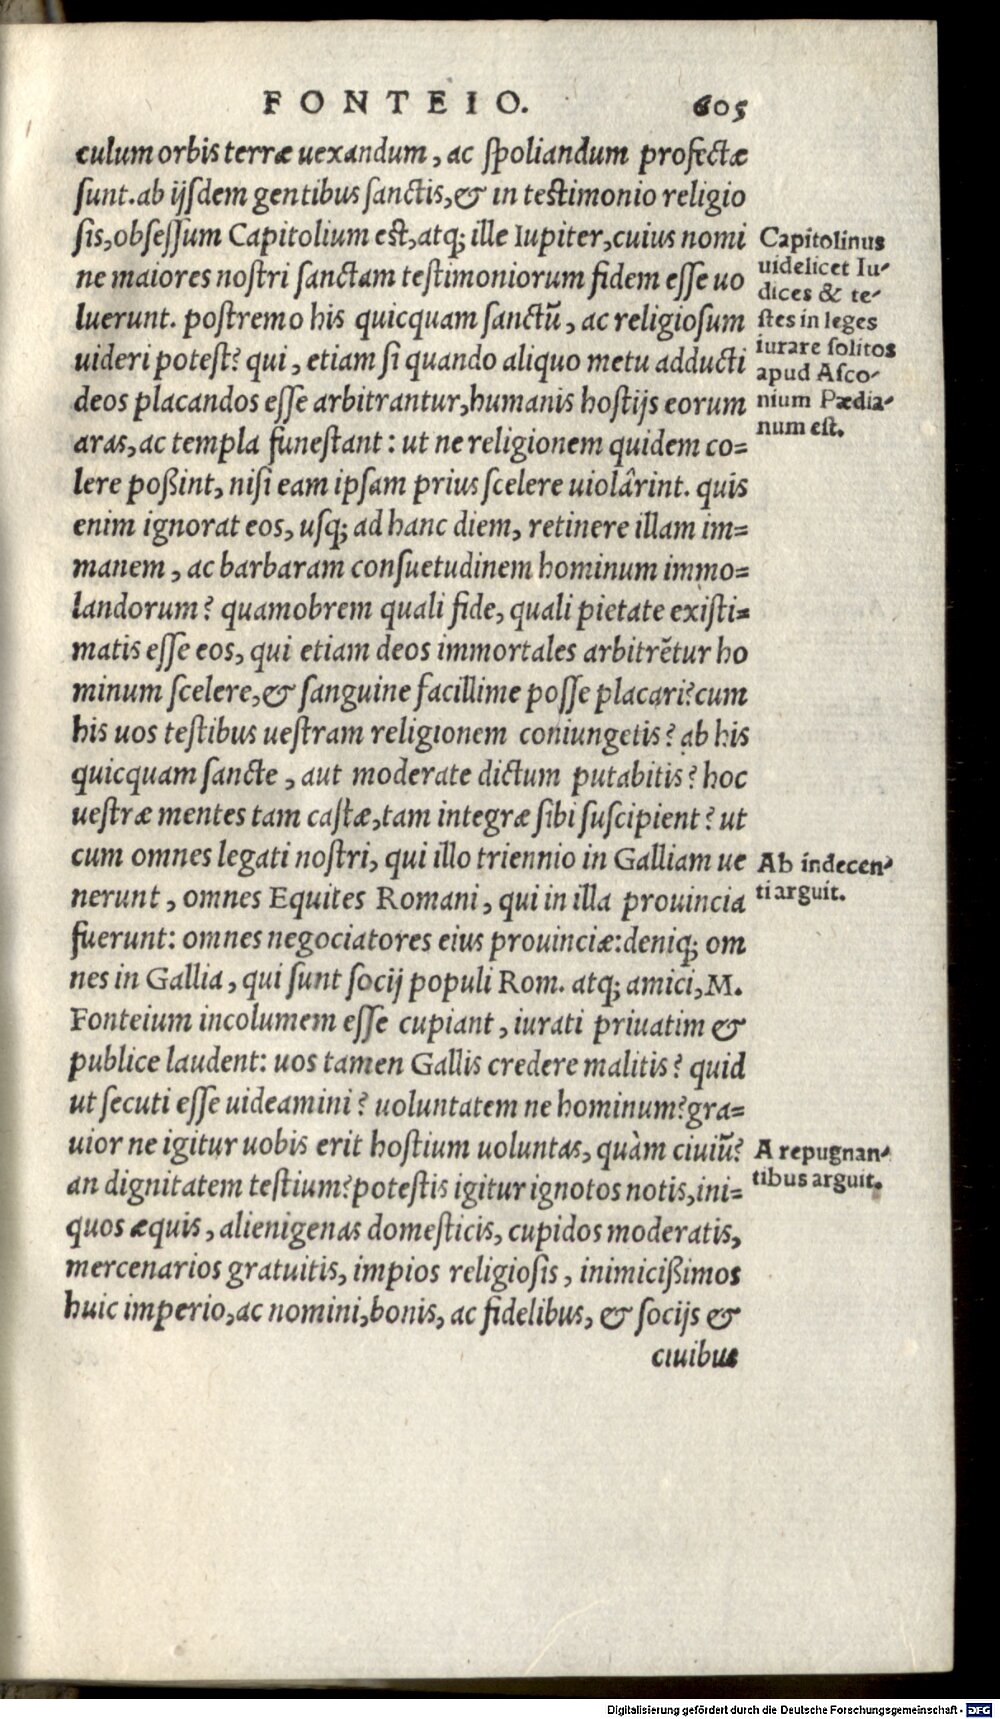 FONTEIO. 605
culum orbis terræ uexandum, ac spoliandum profectæ
sunt. ab ijsdem gentibus sanctis, & in testimonio religio
sis, obsessum Capitolium est, atq; ille Iupiter, cuius nomi
ne maiores nostri sanctam testimoniorum fidem esse uo
luerunt. postremo his quicquam sanctũ, ac religiosum
uideri potest? qui, etiam si quando aliquo metu adducti
deos placandos esse arbitrantur, humanis hostijs eorum
aras, ac templa funestant: ut ne religionem quidem co=
lere poßint, nisi eam ipsam prius scelere uiolârint. quis
enim ignorat eos, usq; ad hanc diem, retinere illam im=
manem, ac barbaram consuetudinem hominum immo=
landorum? quamobrem quali fide, quali pietate existi=
matis esse eos, qui etiam deos immortales arbitrẽtur ho
minum scelere, & sanguine facillime posse placari? cum
his uos testibus uestram religionem coniungetis? ab his
quicquam sancte, aut moderate dictum putabitis? hoc
uestræ mentes tam castæ, tam integræ sibi suscipient? ut
cum omnes legati nostri, qui illo triennio in Galliam ue
nerunt, omnes Equites Romani, qui in illa prouincia
fuerunt: omnes negociatores eius prouinciæ: deniq; om
nes in Gallia, qui sunt socij populi Rom. atq; amici, M.
Fonteium incolumem esse cupiant, iurati priuatim &
publice laudent: uos tamen Gallis credere malitis? quid
ut secuti esse uideamini? uoluntatem ne hominum? gra=
uior ne igitur uobis erit hostium uoluntas, quàm ciuiũ?
an dignitatem testium? potestis igitur ignotos notis, ini=
quos æquis, alienigenas domesticis, cupidos moderatis,
mercenarios gratuitis, impios religiosis, inimicißimos
huic imperio, ac nomini, bonis, ac fidelibus, & socijs &
ciuibus
Capitolinus
uidelicet Iu-
dices & te-
stes in leges
iurare solitos
apud Asco-
nium Pædia-
num est.
Ab indecen-
ti arguit.
A repugnan-
tibus arguit.
Digitalisierung gefördert durch die Deutsche Forschungsgemeinschaft - DFG